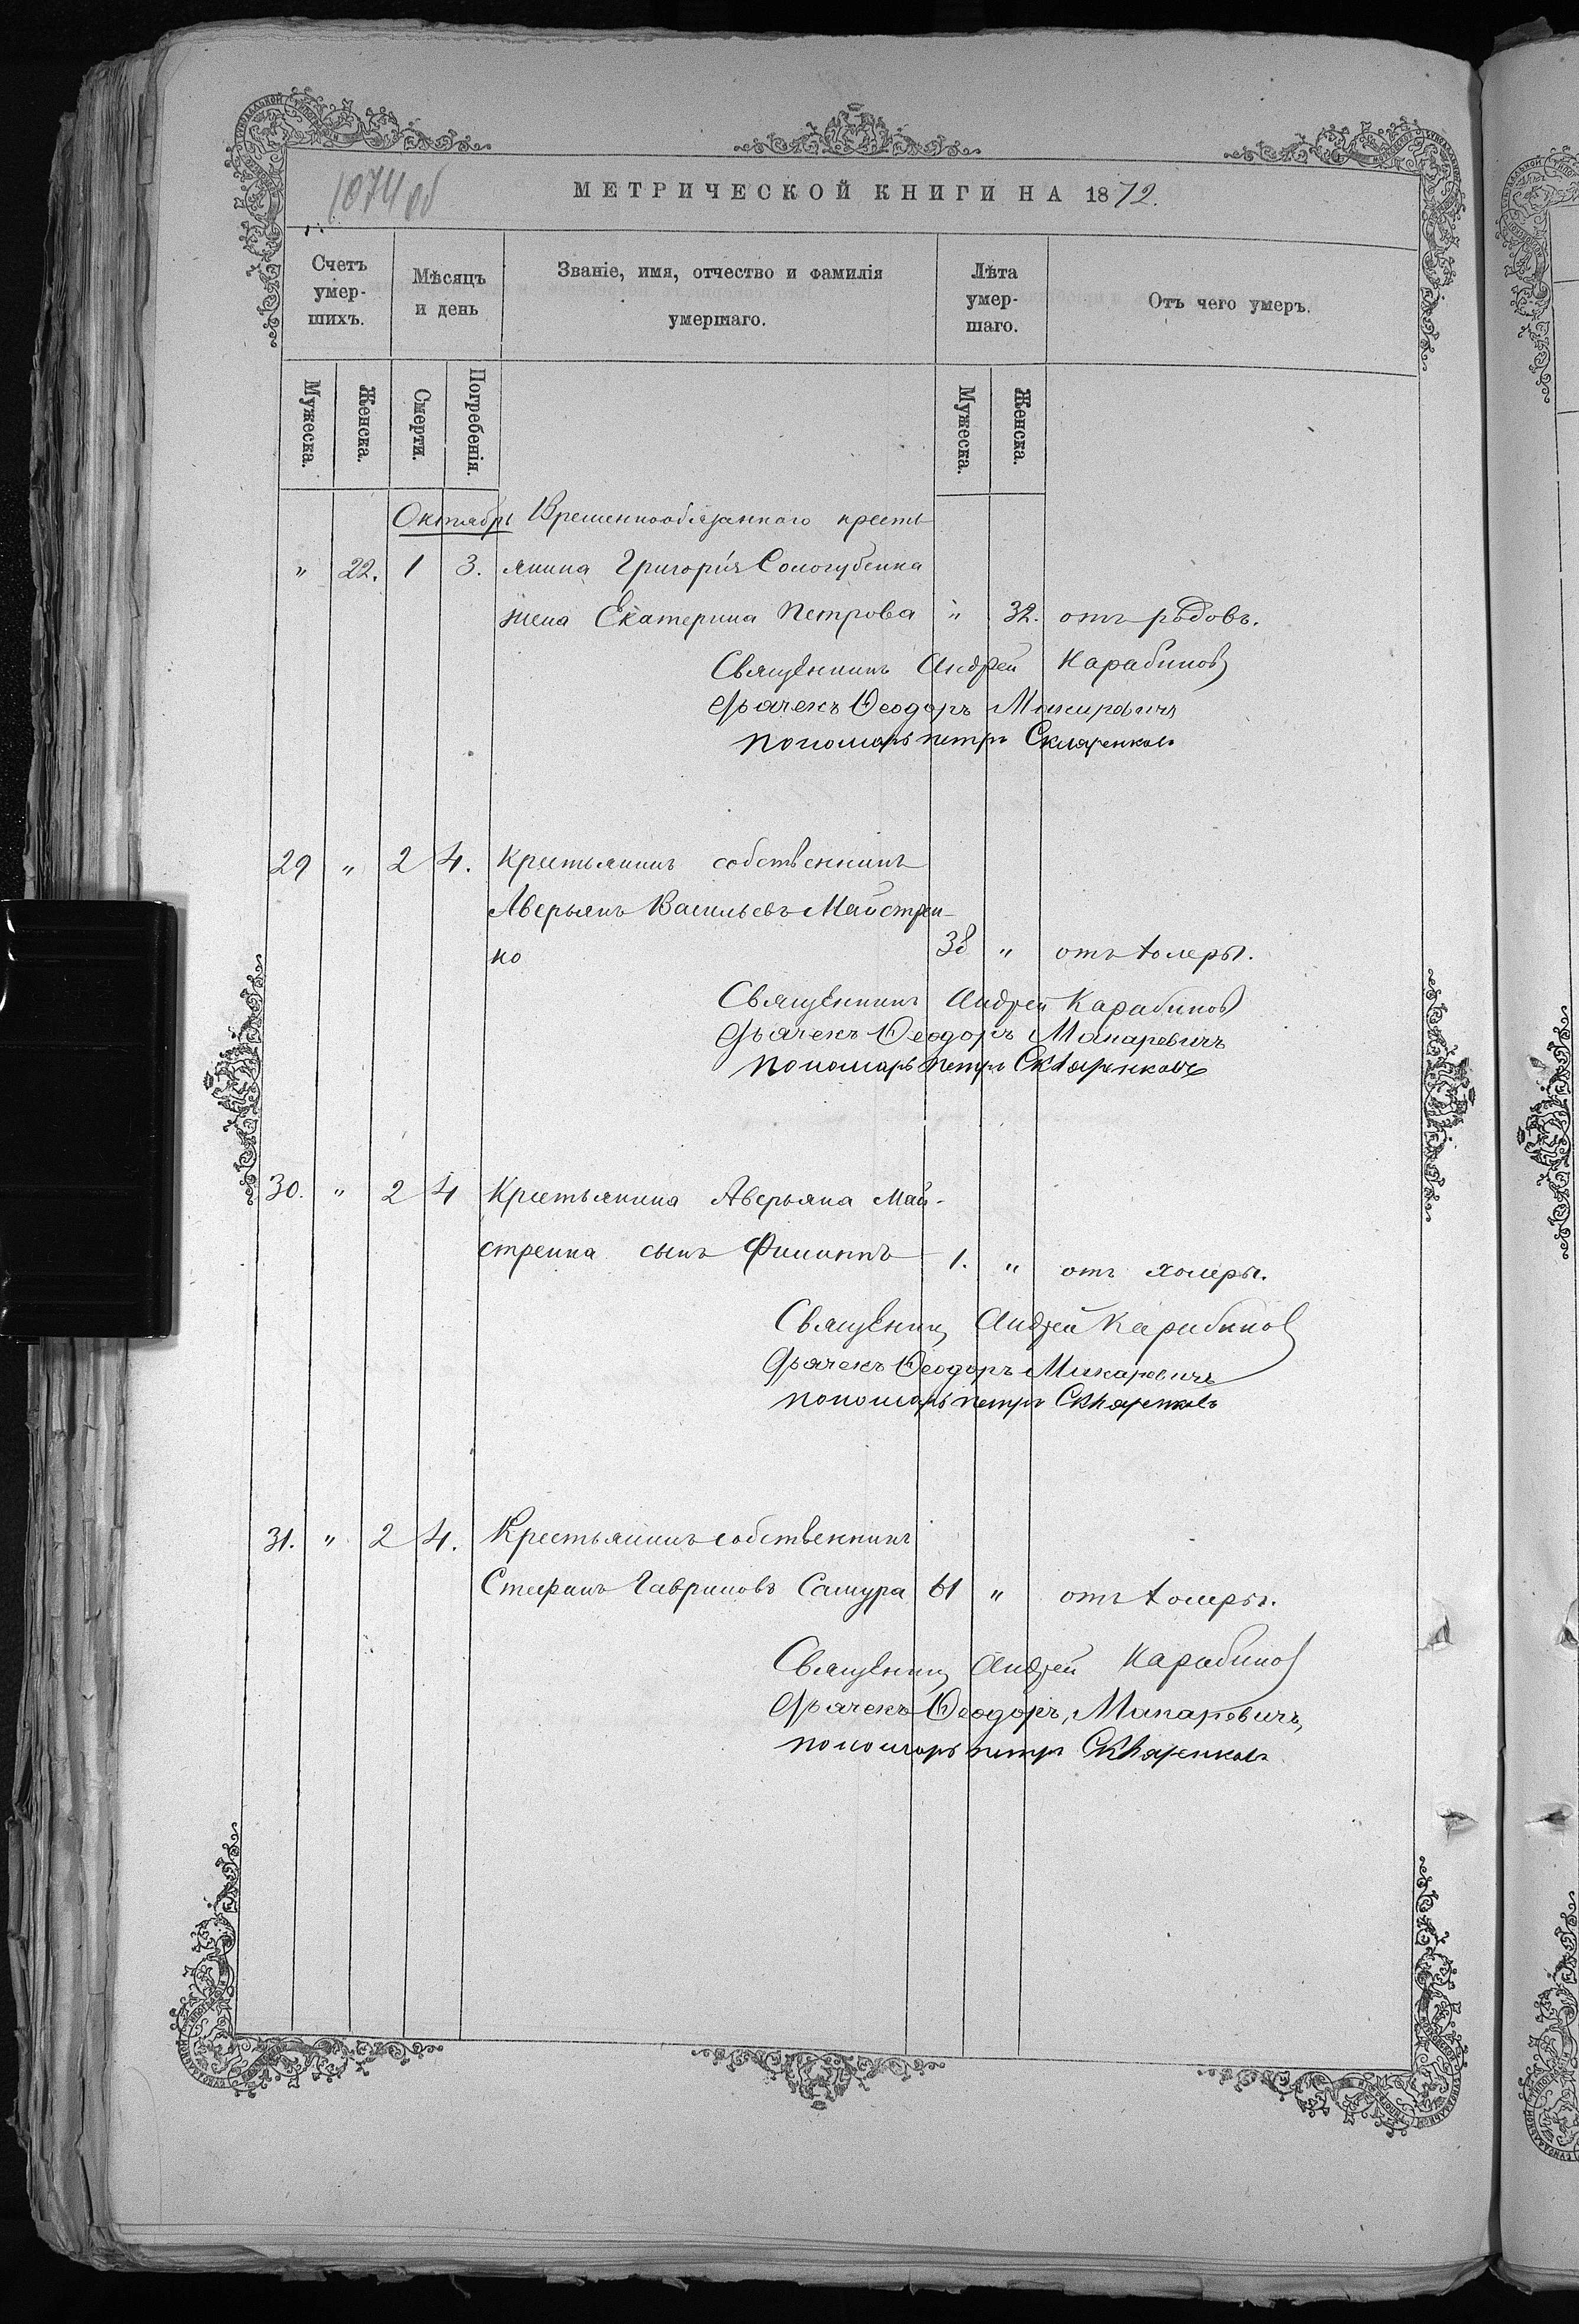 1074 об
МЕТРИЧЕСКОЙ КНИГИ НА 1872.
Счетъ умер- шихъ.
Мѣсяцъ и день
Званіе, имя, отчество и фамилія умершаго.
Лѣта умер- шаго.
Отъ чего умеръ.
Мужеска.
Женска.
Смерти.
Погребенія.
Мужеска.
Женска.
Октябрь Временнообязаннаго кресть
" 22. 1 3. янина Григорія Сологубенка
жена Екатерина Петрова " 32. отъ родовъ.
Священникъ Андрей Карабиновъ
Дьячекъ Ѳеодоръ Макаревичъ
пономарь петръ Скляренковъ
29 " 2 4. Крестьянинъ собственникъ
Аверьянъ Васильевъ Майстрен-
ко 38 " отъ холеры.
Священникъ Андрей Карабиновъ
Дьячекъ Ѳеодоръ Макаревичъ
пономарь петръ Скляренковъ
30. " 2 4 Крестьянина Аверьяна Май-
стренка сынъ Филиппъ 1. " отъ холеры.
Священникъ Андрей Карабиновъ
Дьячекъ Ѳеодоръ Макаревичъ
пономарь петръ Скляренковъ
31. " 2 4. Крестьянинъ собственникъ
Стефанъ Гавриловъ Самура 61 " отъ холеры.
Священникъ Андрей Карабиновъ
Дьячекъ Ѳеодоръ, Макаревичъ,
пономарь петръ Скляренковъ